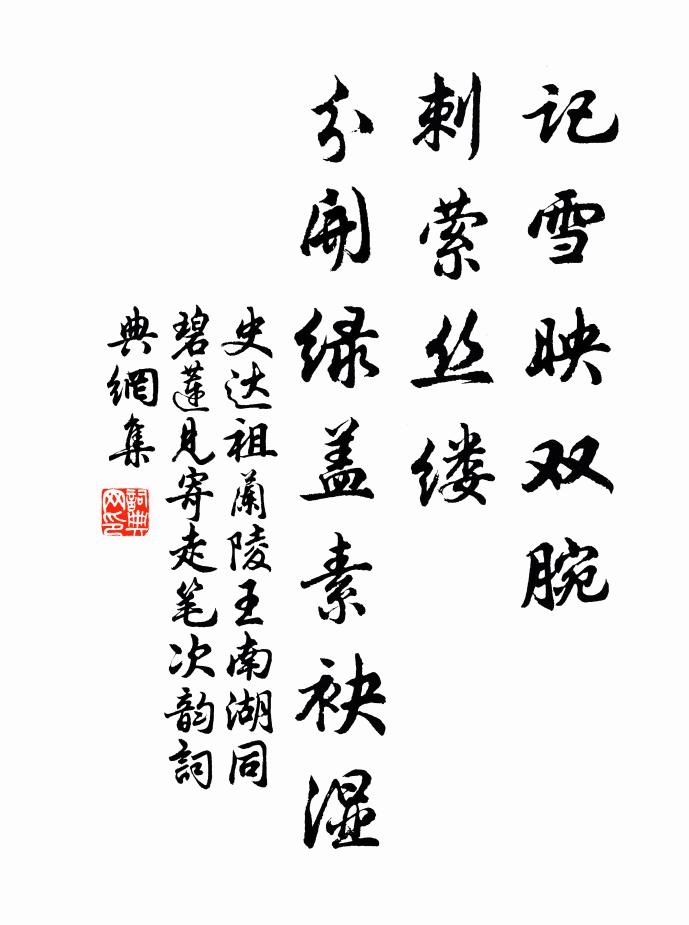 记雪映双腕
刺萦丝缕
分開绿盖素袂湿
史达祖蘭陵王南湖同
碧蓮見寄走笔次韵詞
典網集
詞典網印